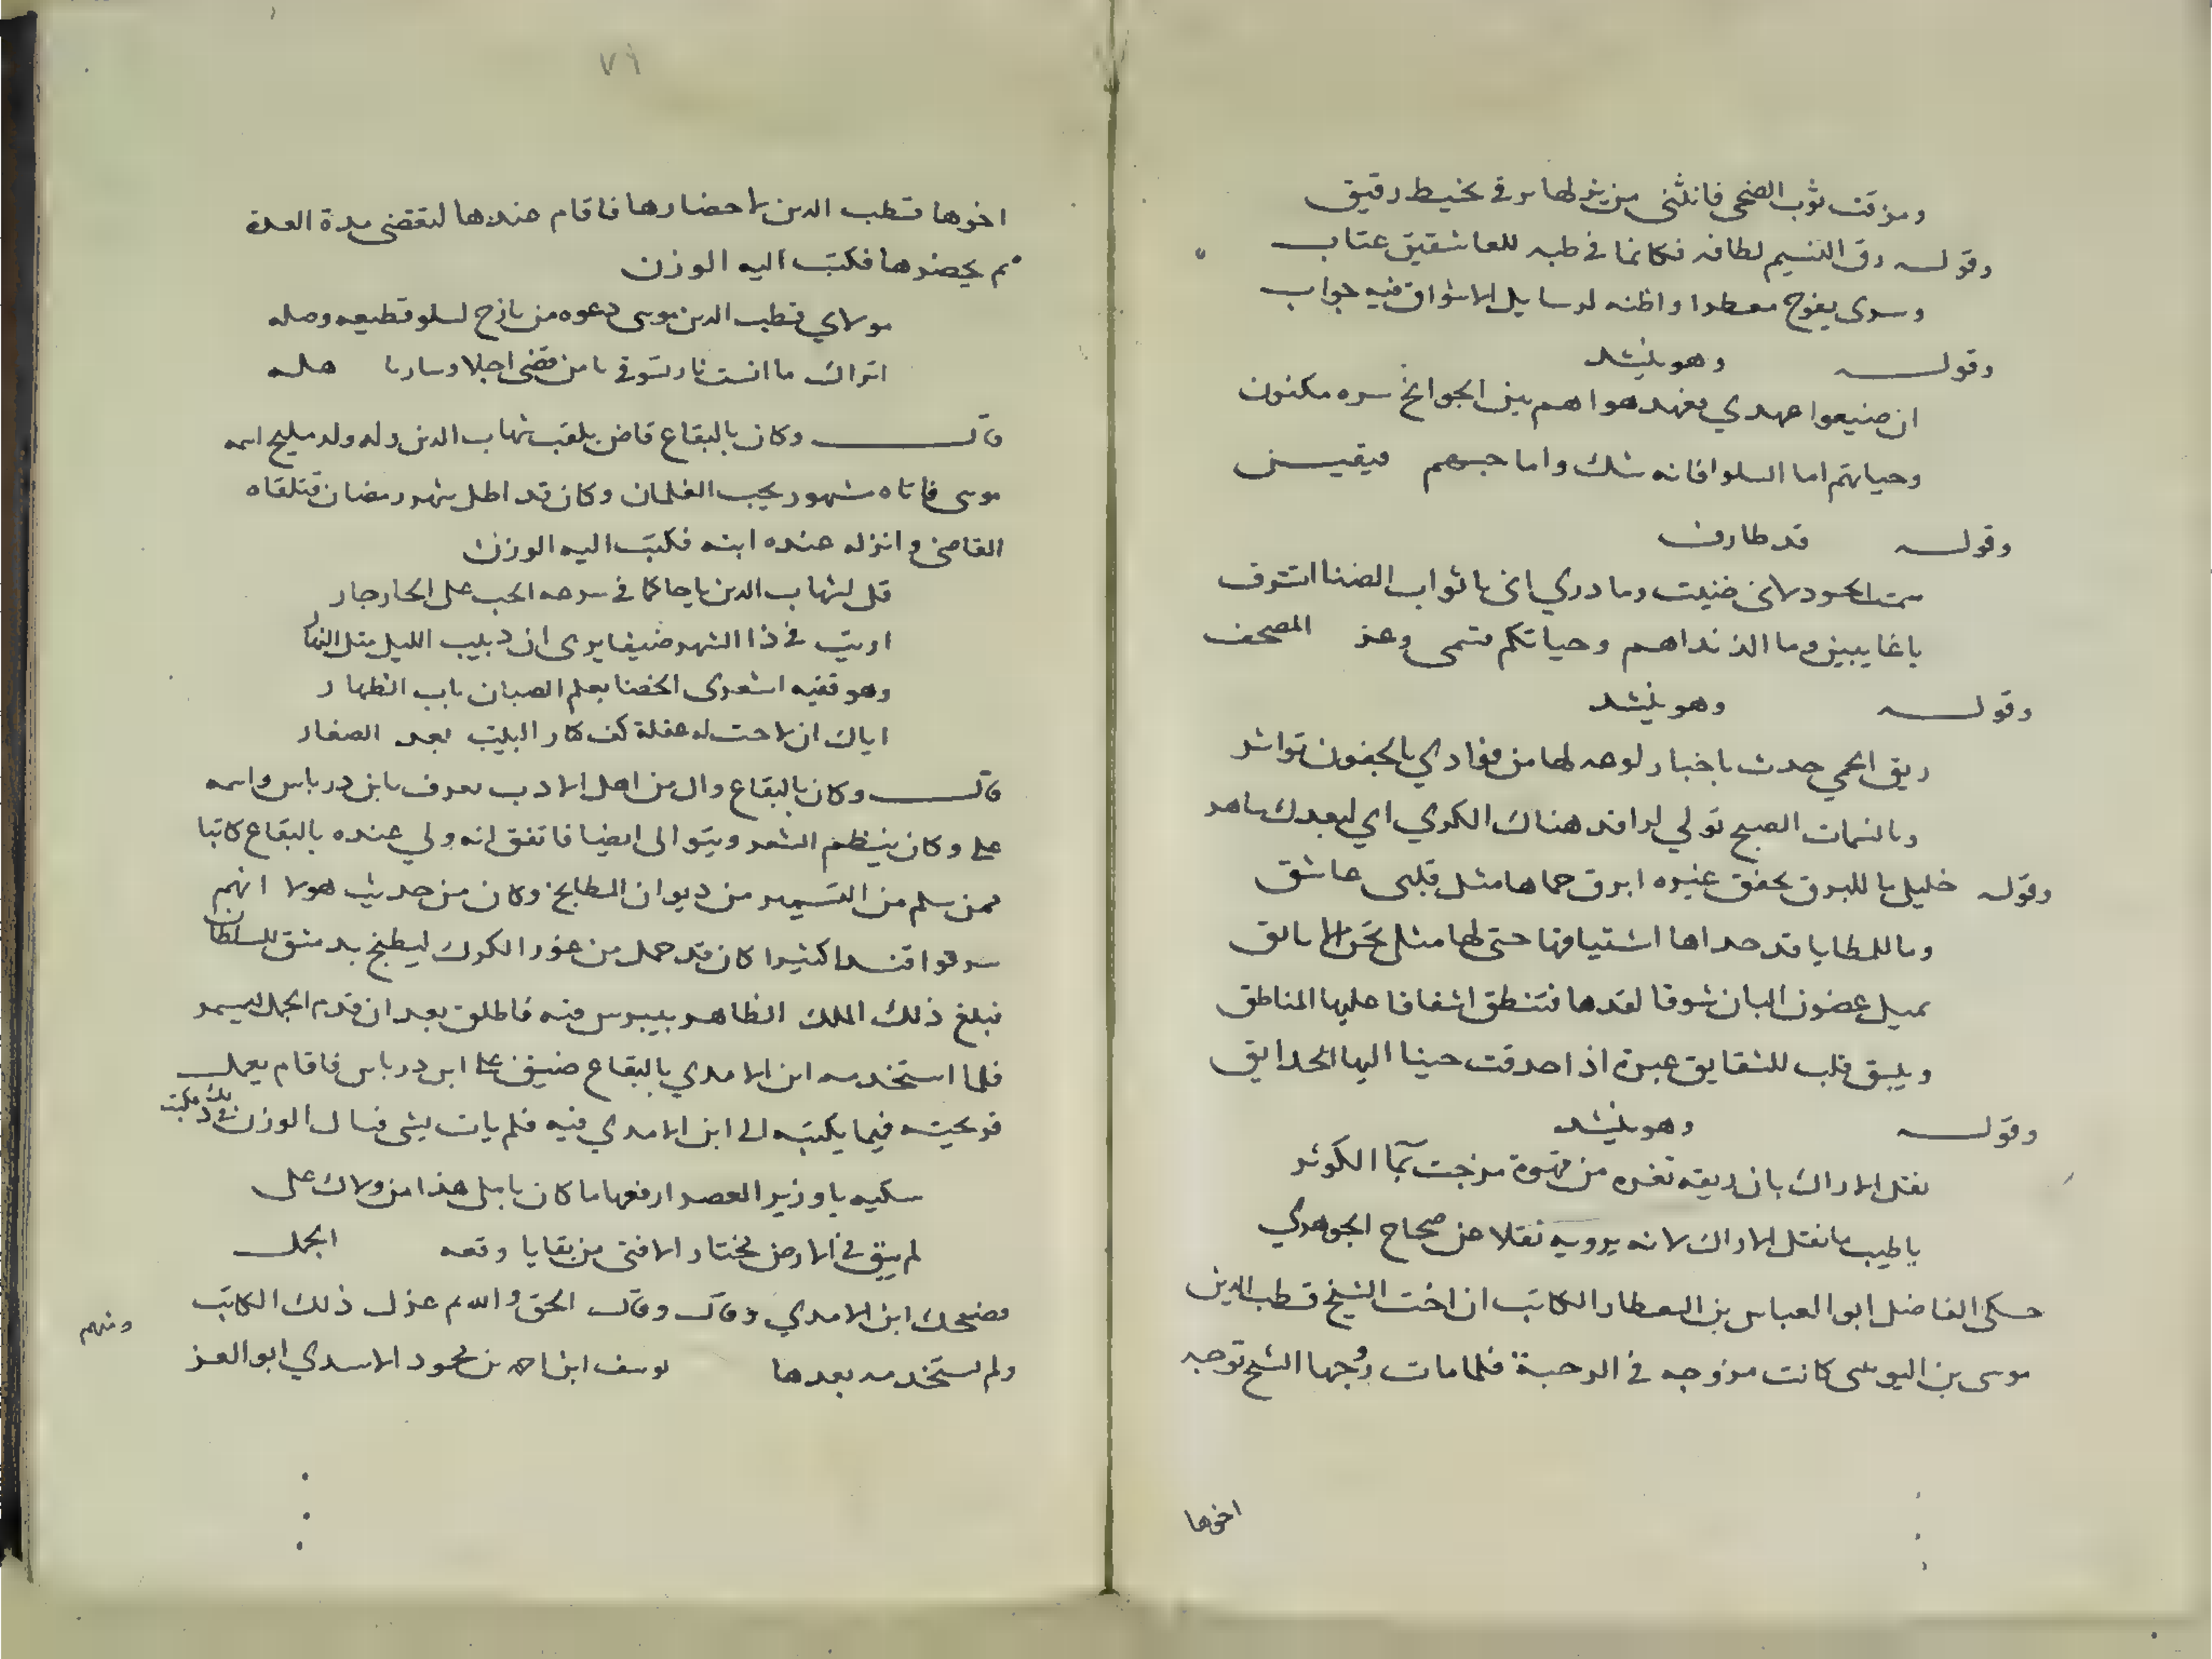 ومزقت ثوب الضحى فانثنى من يزلها برفى بخيط رقيق
وقوله رق النسيم لطافة فكانما في طبه للعاشقين عتاب
وسرى يفوح معطرا واظنه لرسايل الاشواق فيه جواب
وقوله وهو ينشد
ان ضيعوا عهدي فعهد هواهم بين الجوانح سره مكنون
وحياتهم اما السلو فانه شك واما حبهم فيقين
وقوله قد طارف
سمت الحسود لانى ضنيت وما درى انى باثواب الضنا اتشرف
يا غايبين وما الذ نداهم وحياتكم قسمى وعز المصحف
وقوله وهو ينشد
ريق الحمي حدث باخبار لوعه لها من فوادي بالجفون تواثر
وبالنسمات الصبح تولي لراقد هناك الكري اي لبعدك ساهر
وقوله خليل ما للبرق يخفق غيره ابرق حماها مثل قلبى عاشق
وما للمطايا قد حداها اشتياقها حتى لها مثل نحن الايانق
تميل غصون البان شوقا لقدها فتنطق اشفاقا عليها المناطق
ويلبق قلب للشقايق عبرة اذا حدقت حينا اليها الحدايق
وقوله وهو ينشد
نقل الاراك بان ريقه ثغره من قهوة مزجت بماَ الكوثر
يا طيب ما نقل الاراك لانه يرويه نقلا عن صحاح الجوهري
حكى الفاضل ابو العباس بن العطار الكاتب ان اخت الشيخ قطب الدين
موسى بن اليونينى كانت مزوجه في الرحبة فلما مات زوجها الشيخ توجه
اخوها
٧٩
اخوها قطب الدين لاحضارها فاقام عندها لتقضى مدة العدة
ثم يحضرها فكتب اليه الوزن
مولاي قطب الدين موسى دعوه من نازح لسلو قطيعه وصله
اتراك ما انست نار تشوقى يا من قضى اجلا وسار باهله
قال وكان بالبقاع قاض يلقب شهاب الدين وله ولد مليح اسمه
موسى فاتاه شهور يحب الغلمان وكان قد اطل شهر رمضان فتلقاه
القاضى وانزله عنده ابنه فكتب اليه الوزن
قل لشهاب الدين يا حاكما في سرعه الحب على الجار جار
اويت في ذا الشهر ضيفا يرى ان دبيب الليل مثل النهار
وهو فقيه اشعرى الخصا يعلم الصبيان باب الظهار
اياك ان لاحت له غفلة كف كار البيت بعد الصغار
قال وكان بالبقاع وال من اهل الادب يعرف بابن درباس واسمه
على وكان ينظم الشعر ويتوالى ايضا فاتفق انه ولي عنده بالبقاع كاتبا
ممن سلم من التسمير من ديوان المطابخ وكان من حديث هولا انهم
سرقوا قندا كثيرا كان قد حمل من غور الكرك ليطبخ بدمشق للسلطان
فبلغ ذلك الملك الظاهر بيبرس منه فاطلق بعد ان قدم الجمل ليسمر
فلما استخدمه ابن الامدي بالبقاع ضيق على ابن درباس فاقام يعمل
قريحته فيما يكتبه الى ابن الامدي فيه فلم يات بشى فسال الوزن في ذلك فكتب
سكيه يا وزير العصر ارفعها ما كان ياامل هذا من ولاك على
لم يبق في الارض مختار الا فتى من بقايا وقعه الجمل
فضحك ابن الامدي وقال وقال الحق والله ثم عزل ذلك الكاتب
ولم يستخدمه بعدها يوسف ابن احمد بن محمود الاسدي ابو العز
ومنهم